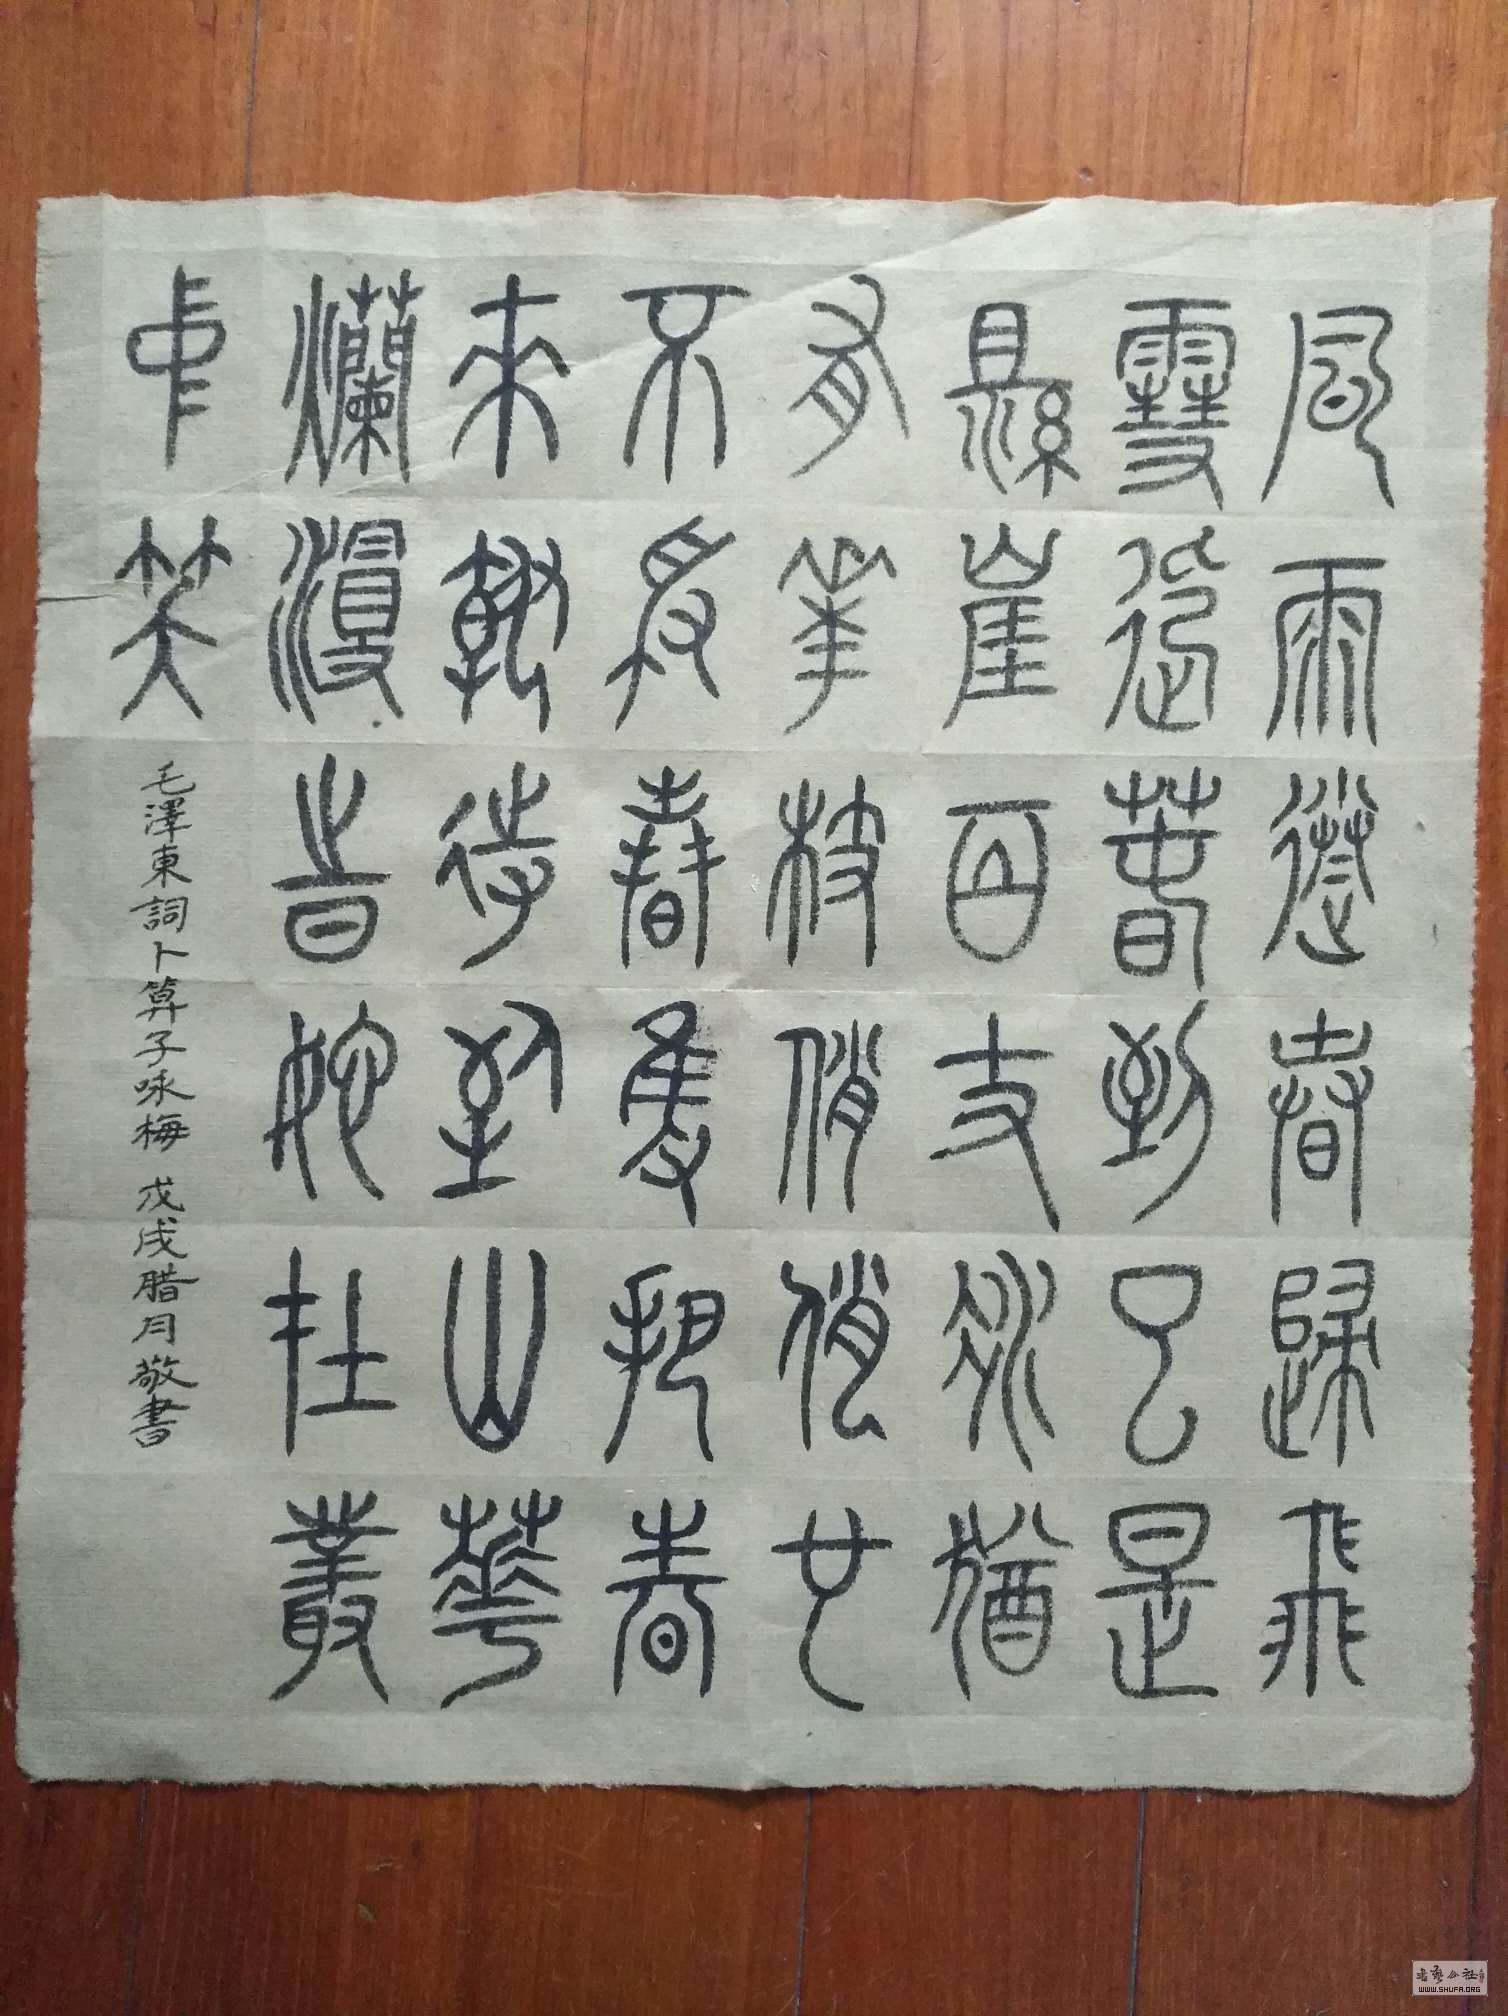 風雨送春歸飛
雪迎春到已是
縣崖百丈冰猶
有華枝俏俏也
不爭春隻把春
來報待到山華
爛漫時她在叢
中笑
毛澤東詞卜算子咏梅 戊戌腊月敬書
書藝公社
WWW.SHUFA.ORG